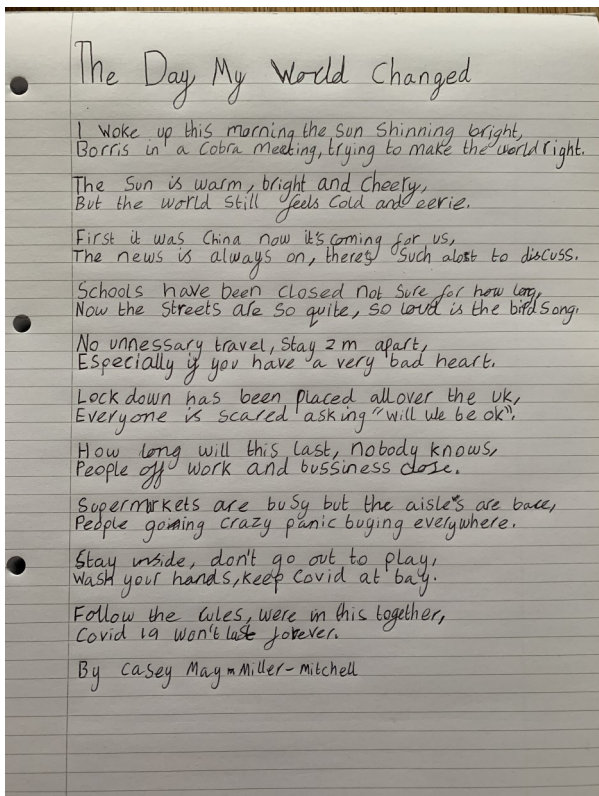 The Day My World Changed
I woke up this morning the sun shinning bright,
Borris in a cobra meeting, trying to make the world right.
The sun is warm, bright and cheery,
But the world still feels cold and eerie.
First it was China now it's coming for us,
The news is always on, there's such alost to discuss.
Schools have been closed not sure for how long,
Now the streets are so quite, so loud is the bird song.
No unnessary travel, stay 2 m apart,
Especially if you have a very bad heart.
Lockdown has been placed all over the uk,
Everyone is scared asking "will we be ok".
How long will this last, nobody knows,
People off work and bussiness close.
Supermarkets are busy but the aisle's are bare,
People going crazy panic buying everywhere.
Stay inside, don't go out to play,
Wash your hands, keep Covid at bay.
Follow the rules, were in this together,
Covid 19 won't last forever.
By Casey May Miller-Mitchell